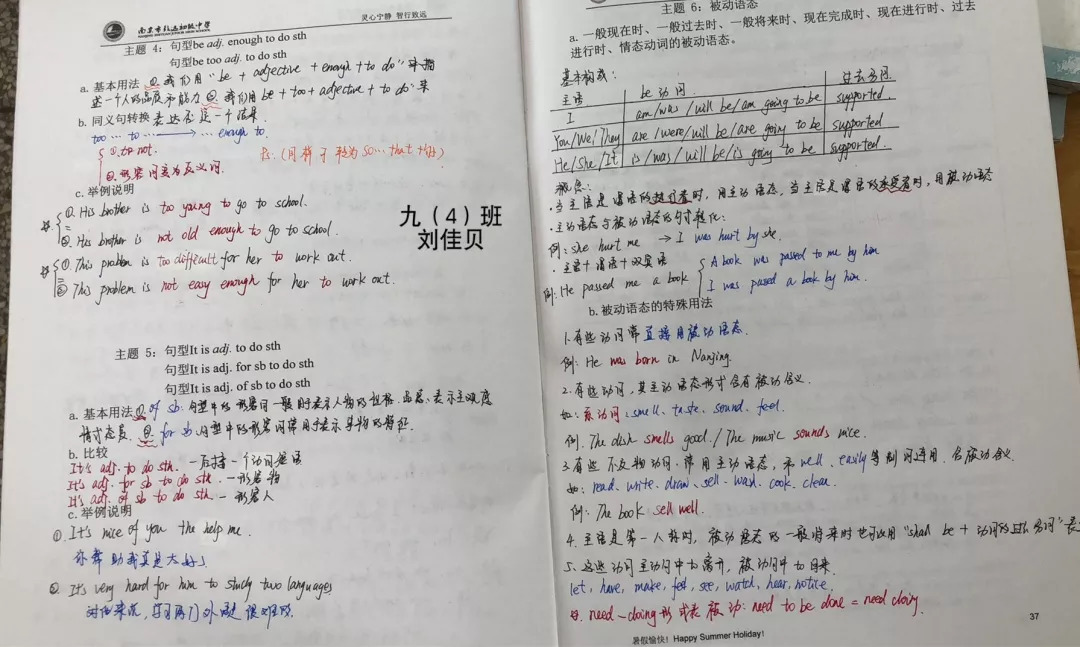 南京市钟英初级中学
灵心宁静 智行致远
主题 4：句型be adj. enough to do sth
句型be too adj. to do sth
a. 基本用法 ①.我们用“be + adjective + enough + to do”来描
述一个人的品质和能力 ②.我们用be + too + adjective + to do 来
b. 同义句转换 表达否定一个结果.
too … to … → … enough to.
①.加 not.
②.形容词变为反义词.
c. 举例说明
①. His brother is too young to go to school.
=
②. His brother is not old enough to go to school.
①. This problem is too difficult for her to work out.
=
② This problem is not easy enough for her to work out.
九（4）班
刘佳贝
主题 5：句型It is adj. to do sth
句型It is adj. for sb to do sth
句型It is adj. of sb to do sth
a. 基本用法 ①. of sb. 句型中的形容词一般用于表示人物的性格.品德.表示主观感
情或态度. ②. for sb 句型中的形容词常用于表示事物的特征.
b. 比较
It's adj. to do sth. — 后接一个动词短语
It's adj. for sb to do sth. — 形容物
It's adj. of sb to do sth. — 形容人
c. 举例说明
① It's nice of you the help me.
你帮助我真是太好了
② It's very hard for him to study two languages
对他来说，学习两门外语是很难的.
主题 6：被动语态
a. 一般现在时、一般过去时、一般将来时、现在完成时、现在进行时、过去
进行时、情态动词的被动语态。
基本构成：
主语 be 动词 过去分词
I am/was/will be/am going to be supported.
You/We/They are/were/will be/are going to be supported
He/She/It is/was/will be/is going to be supported.
概念：
·当主语是谓语的执行者时，用主动语态，当主语是谓语的承受者时，用被动语态
·主动语态与被动语态的句式转化：
例：she hurt me → I was hurt by she.
·主语+谓语+双宾语
例：He passed me a book
A book was passed to me by him
I was passed a book by him.
b. 被动语态的特殊用法
1.有些动词常直接用被动语态.
例：He was born in Nanjing.
2.有些动词，其主动语态形式含有被动含义.
如：系动词：smell、taste、sound、feel.
例. The dish smells good. / The music sounds nice.
3.有些不及物动词.常用主动语态，和well、easily等副词连用.含被动含义
如：read、write、draw、sell、wash、cook、clean.
例：The book sell well.
4.主语是第一人称时，被动语态的一般将来时也可以用“shall be + 动词的过去分词”
5.这些动词主动句中to离开，被动句中to回来.
let, have, make, feel, see, watch, hear, notice.
need-doing形式表被动：need to be done = need doing.
37
暑假愉快！Happy Summer Holiday!